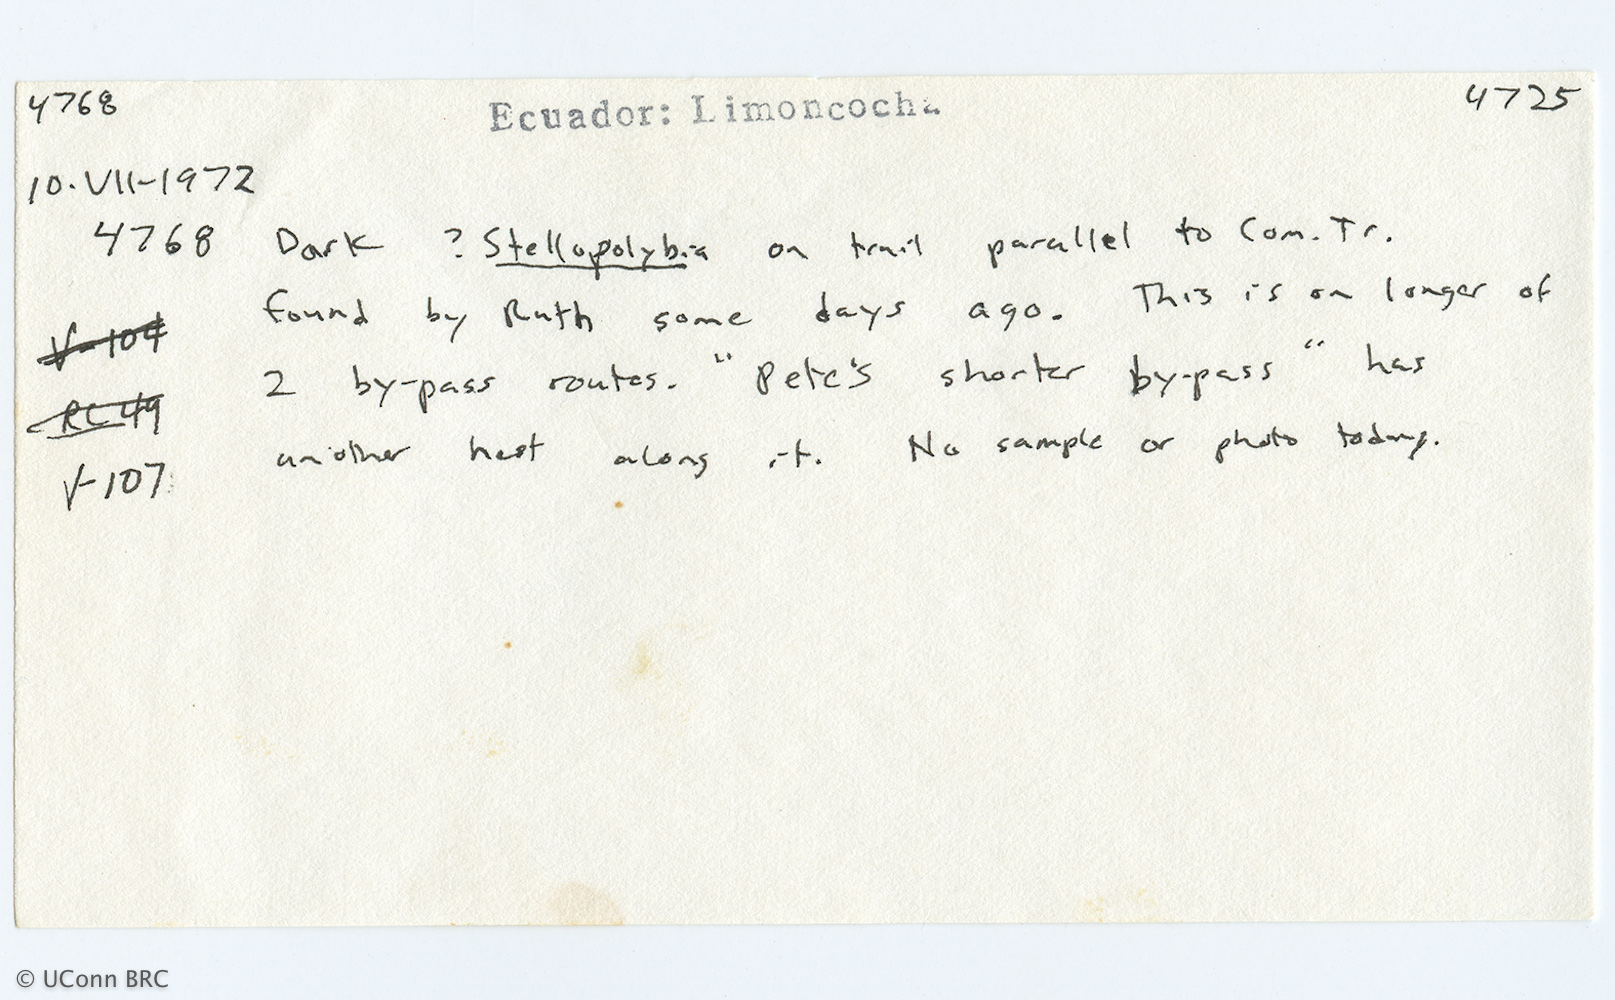 4768 Ecuador: Limoncocha 4725
10-VII-1972
4768 Dark ? Stellopolybia on trail parallel to Com. Tr.
found by Ruth some days ago. This is on longer of
V-104
2 by-pass routes. "Pete's shorter by-pass" has
RC 49
another nest along it. No sample or photo today.
V-107
© UConn BRC